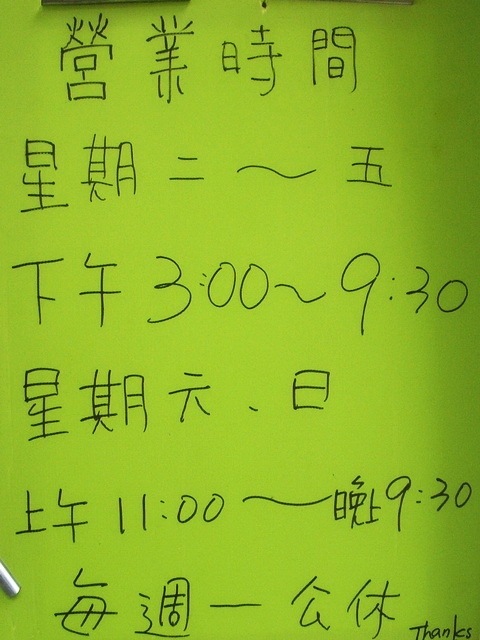 營業時間
星期二～五
下午3:00～9:30
星期六、日
上午11:00～晚上9:30
每週一公休
Thanks